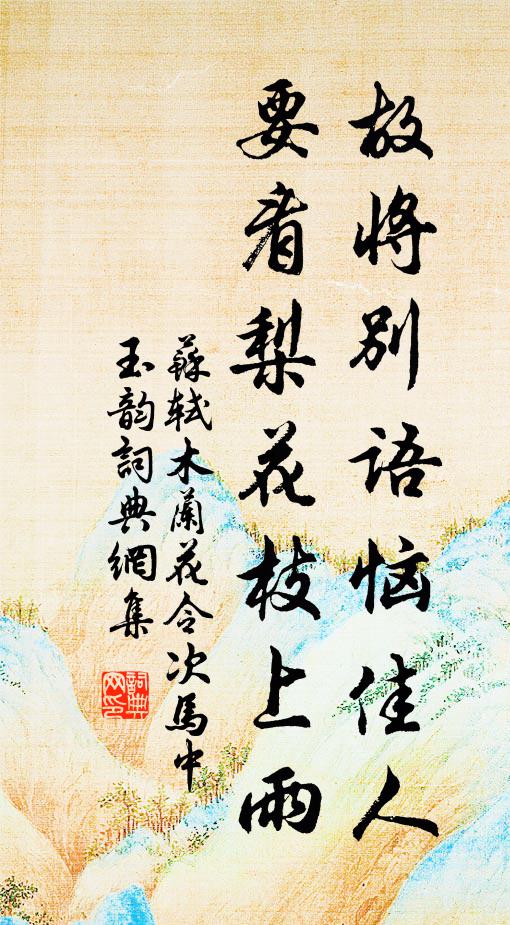 故将别语恼佳人
要看梨花枝上雨
蘇轼木蘭花令次馬中
玉韵詞典網集
詞典
网印